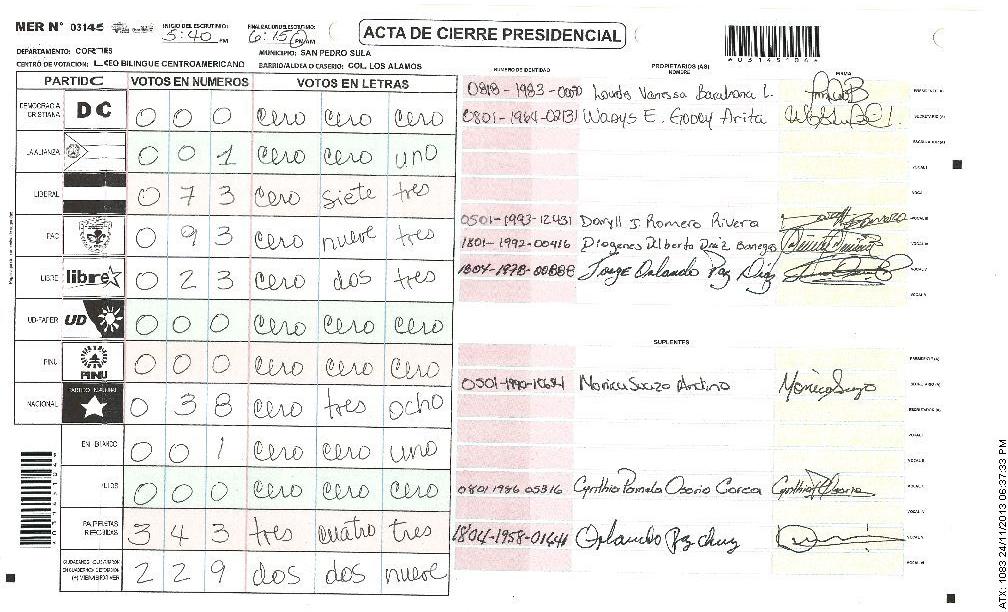 MER N° 03145 INICIO DEL ESCRUTINIO: 5:40 PM FINALIZACION ESCRUTINIO: 6:15 PM AM
ACTA DE CIERRE PRESIDENCIAL
DEPARTAMENTO: CORTES MUNICIPIO: SAN PEDRO SULA
CENTRO DE VOTACION: LICEO BILINGUE CENTROAMERICANO BARRIO/ALDEA O CASERIO: COL. LOS ALAMOS
PARTIDO VOTOS EN NUMEROS VOTOS EN LETRAS
DEMOCRACIA CRISTIANA DC 0 0 0 cero cero cero
LA ALIANZA 0 0 1 cero cero uno
LIBERAL 0 7 3 cero siete tres
PAC 0 9 3 cero nueve tres
LIBRE libre 0 2 3 cero dos tres
UD-FAPER UD 0 0 0 cero cero cero
PINU PINU 0 0 0 cero cero cero
NACIONAL 0 3 8 cero tres ocho
EN BLANCO 0 0 1 cero cero uno
0 0 0 cero cero cero
PAPELETAS RECIBIDAS 3 4 3 tres cuatro tres
2 2 9 dos dos nueve
03145104
NUMERO DE IDENTIDAD PROPIETARIOS (AS) NOMBRE FIRMA
Lourdes Vanessa Barahona L. PRESIDENTE (A)
0801-1964-02131 Wadys E. Godoy Arita SECRETARIO (A)
ESCRUTADOR (A)
VOCAL I
0501-1993-12431 Daryll J. Romero Rivera VOCAL III
1801-1992-00416 Diogenes Dilberto Diaz Banegas VOCAL IV
1804-1978-00888 Jorge Orlando Paz Diaz VOCAL V
SUPLENTES
PRESIDENTE (A)
Monica Suazo Andino Monica Suazo SECRETARIO (A)
ESCRUTADOR (A)
VOCAL I
VOCAL II
0801 1986 05316 Cynthia Pamela Osorio Correa
1804-1958-01441 Orlando Paz
ATX: 1083 24/11/2013 06:37:33 PM